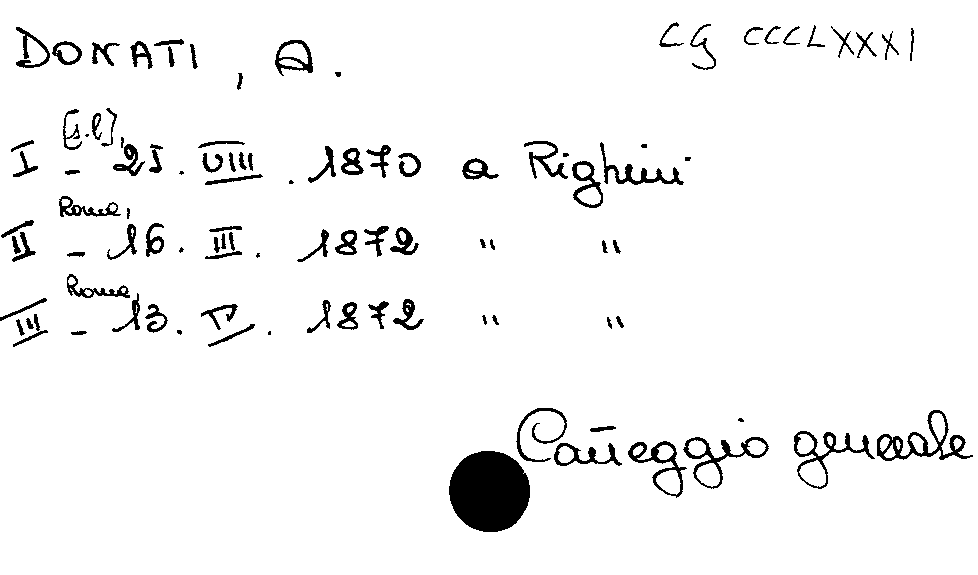 DONATI, A.
CG CCCLXXXI
I - [s.l], 21. VIII. 1870 a Righini
II - Roma, 16. III. 1872 " "
III - Roma, 13. IV. 1872 " "
Carteggio generale